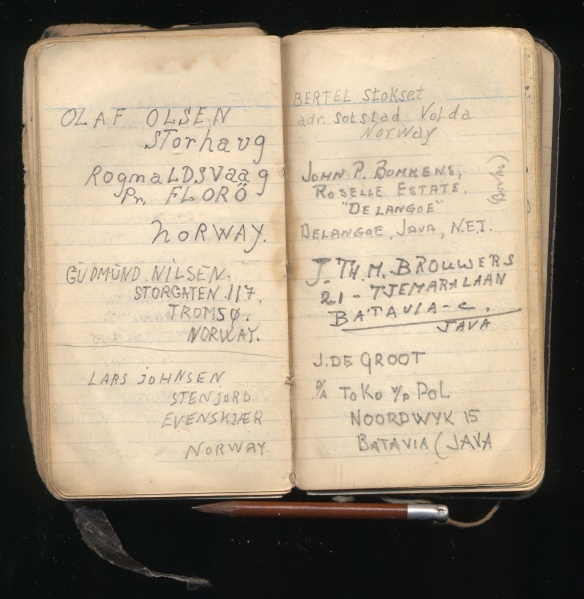 OLAF OLSEN
STorhaug
RogmaLDSVaag
Pr. FLORÖ
NORWAY.
GUDMUND NILSEN.
STORGATEN 117.
TROMSØ.
NORWAY.
LARS JOHNSEN
STENJORD
EVENSKJÆR
NORWAY.
BERTEL Stokset
adr. Solstad Volda
Norway
JOHN P. BOMKENS,
ROSELLE ESTATE.
"DELANGOE"
DELANGOE, JAVA, N.E.I.
J. TH. M. BROUWERS
21 - TJEMARALAAN
BATAVIA-C.
JAVA
J. DE GROOT
P/A TOKO V/D POL
NOORDWYK 15
BATAVIA ( JAVA